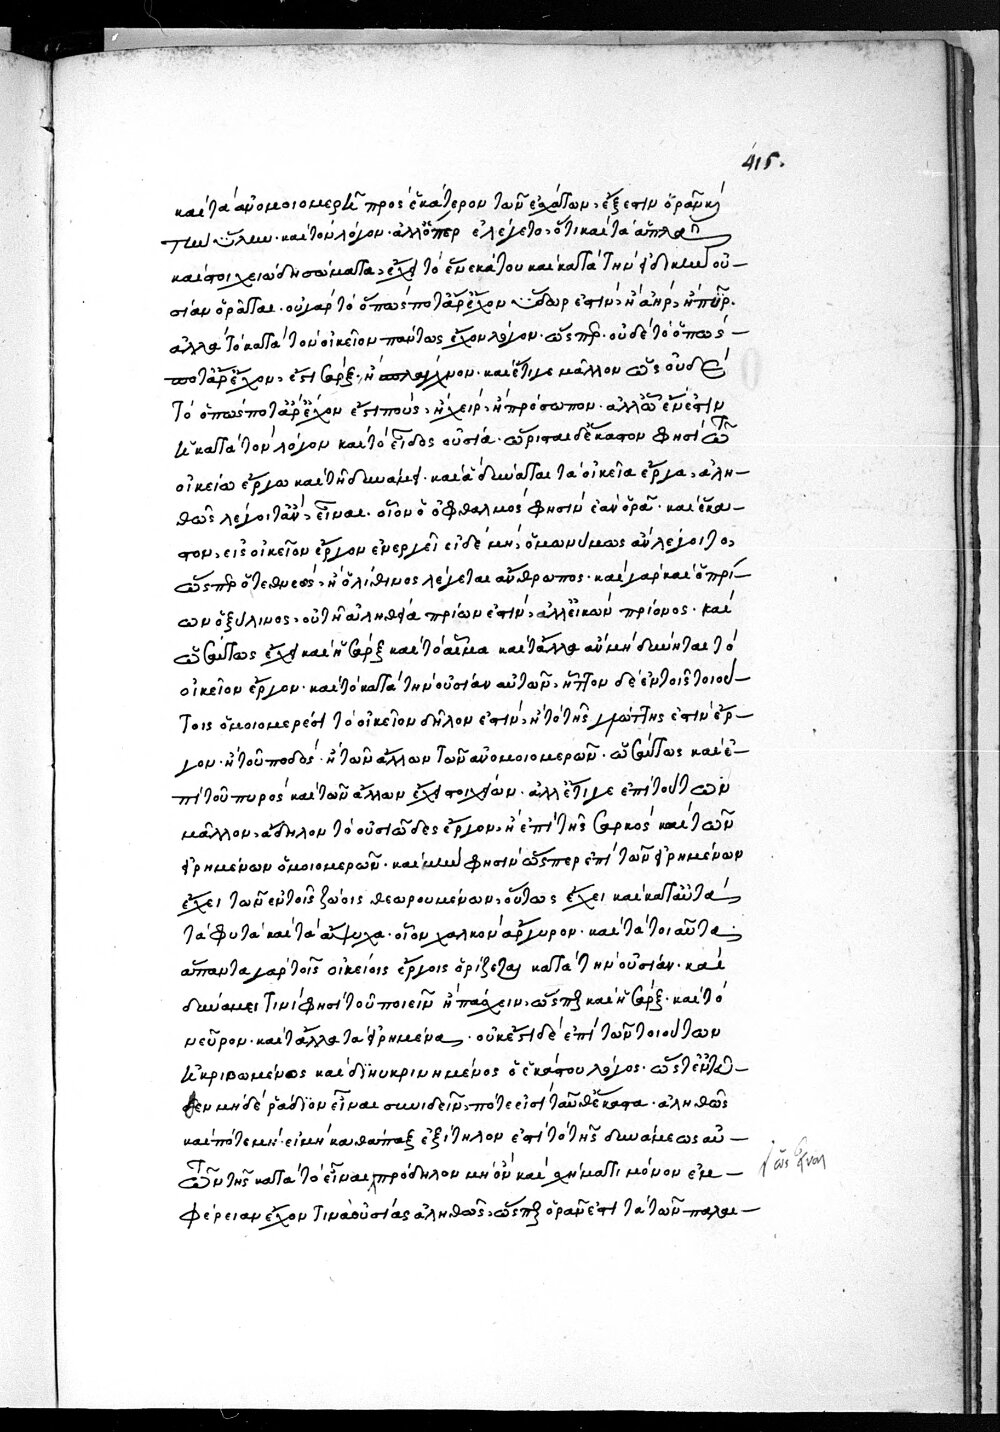 415.
καὶ τὰ ἀνομοιομερῆ πρὸς ἑκάτερον τῶν ἐσχάτων, ἔξεστιν ὁρᾶν κὶ
τὴν ὕλην· καὶ τὸν λόγον· ἀλλ' ὅπερ ἐλέγετο, ὅτι καὶ τὰ ἁπλᾶ
καὶ στοιχειώδη σώματα, ἔχει τὸ ἕνεκά του καὶ κατὰ τὴν εἰδικὴν οὐ-
σίαν ὁρᾶται· οὐ γὰρ τὸ ὅπως ποτ' ἂρ ἔχον ὕδωρ ἐστὶν, ἢ ἀὴρ, ἢ πῦρ·
ἀλλὰ τὸ κατὰ τὸν οἰκεῖον πάντως ἔχον λόγον· ὥσπερ οὐδὲ τὸ ὅπως
ποτ' ἂρ ἔχον, ἐστὶ σὰρξ, ἢ καὶ ἔτι γε μᾶλλον ὡς οὐδὲ
τὸ ὅπως ποτ' ἂρ ἔχον ἐστὶ πούς, ἢ χεὶρ, ἢ πρόσωπον· ἀλλ' ὧ ἔνεστιν
ἡ κατὰ τὸν λόγον καὶ τὸ εἶδος οὐσία· ὥρισται δ' ἕκαστον φησὶ τῶ
οἰκείω ἔργω καὶ τῆ δυνάμει· καὶ ἃ δύναται τὰ οἰκεῖα ἔργα, ἀλη-
θῶς λέγοιτ' ἂν, εἶναι· οἷον ὁ ὀφθαλμὸς φησὶν ἐὰν ὁρᾶ· καὶ ἕκασ-
τον, εἰς οἰκεῖον ἔργον ἐνεργεῖ εἰ δὲ μὴ, ὁμωνύμως ἂν λέγοιτο,
ὥσπερ ὁ τεθνεώς, ἢ ὁ λίθινος λέγεται ἄνθρωπος· καὶ γὰρ καὶ ὁ πρί-
ων ὁ ξύλινος, οὐ τῆ ἀληθεία πρίων ἐστὶν, ἀλλ' εἰκὼν πρίονος· καὶ
ὡσαύτως ἔχει καὶ ἡ σὰρξ καὶ τὸ αἷμα καὶ τἄλλα ἂν μὴ δύνηται τὸ
οἰκεῖον ἔργον· καὶ τὸ κατὰ τὴν οὐσίαν αὐτῶν, ἧττον δὲ ἐν τοῖς τοιού-
τοις ὁμοιομερέσι τὸ οἰκεῖον δῆλον ἐστὶν, ἢ τὸ τῆς γλώττης ἐστὶν ἔρ-
γον· ἢ τοῦ ποδὸς· ἢ τῶν ἄλλων τῶν ἀνομοιομερῶν· ὡσαύτως καὶ ἐ-
πὶ τοῦ πυρὸς καὶ τῶν ἄλλων ἔχει στοιχείων· ἀλλ' ἔτι γε ἐπὶ τούτων
μᾶλλον, ἄδηλον τὸ οὐσιῶδες ἔργον, ἢ ἐπὶ τῆς σαρκὸς καὶ τῶν
εἰρημένων ὁμοιομερῶν· καὶ μὴν φησὶν ὥσπερ ἐπὶ τῶν εἰρημένων
ἔχει τῶν ἐν τοῖς ζώοις θεωρουμένων, οὕτως ἔχει καὶ κατ' αὐτὰ
τὰ φυτὰ καὶ τὰ ἄψυχα· οἷον χαλκὸν ἄργυρον· καὶ τὰ τοιαῦτα·
ἅπαντα γὰρ τοῖς οἰκείοις ἔργοις ὁρίζεται κατὰ τὴν οὐσίαν· καὶ
δυνάμει τινὶ φησὶ τοῦ ποιεῖν ἢ πάσχειν, ὥσπερ καὶ ἡ σὰρξ· καὶ τὸ
νεῦρον· καὶ τἄλλα τὰ εἰρημένα· οὐκ ἔστι δὲ ἐπὶ τῶν τοιούτων
ἠκριβωμένος καὶ διηυκρινημένος ὁ ἑκάστου λόγος· ὥστ' ἐντεῦ-
θεν μηδὲ ῥάδιον εἶναι συνιδεῖν, πότε ἐστὶ ταῦθ' ἕκαστα· ἀληθῶς
καὶ πότε μή· εἰ μὴ καθάπαξ ἐξίτηλον ἐστὶ τὸ τῆς δυνάμεως αὐ-
τῶν τῆς κατὰ τὸ εἶναι πρόδηλον μὴ ὂν καὶ σχήματι μόνον ἐμ-
φέρειαν ἔχον τινὰ οὐσίας ἀληθῶς, ὥσπερ ὁρᾶν ἐστὶ τὰ τῶν παλαι-